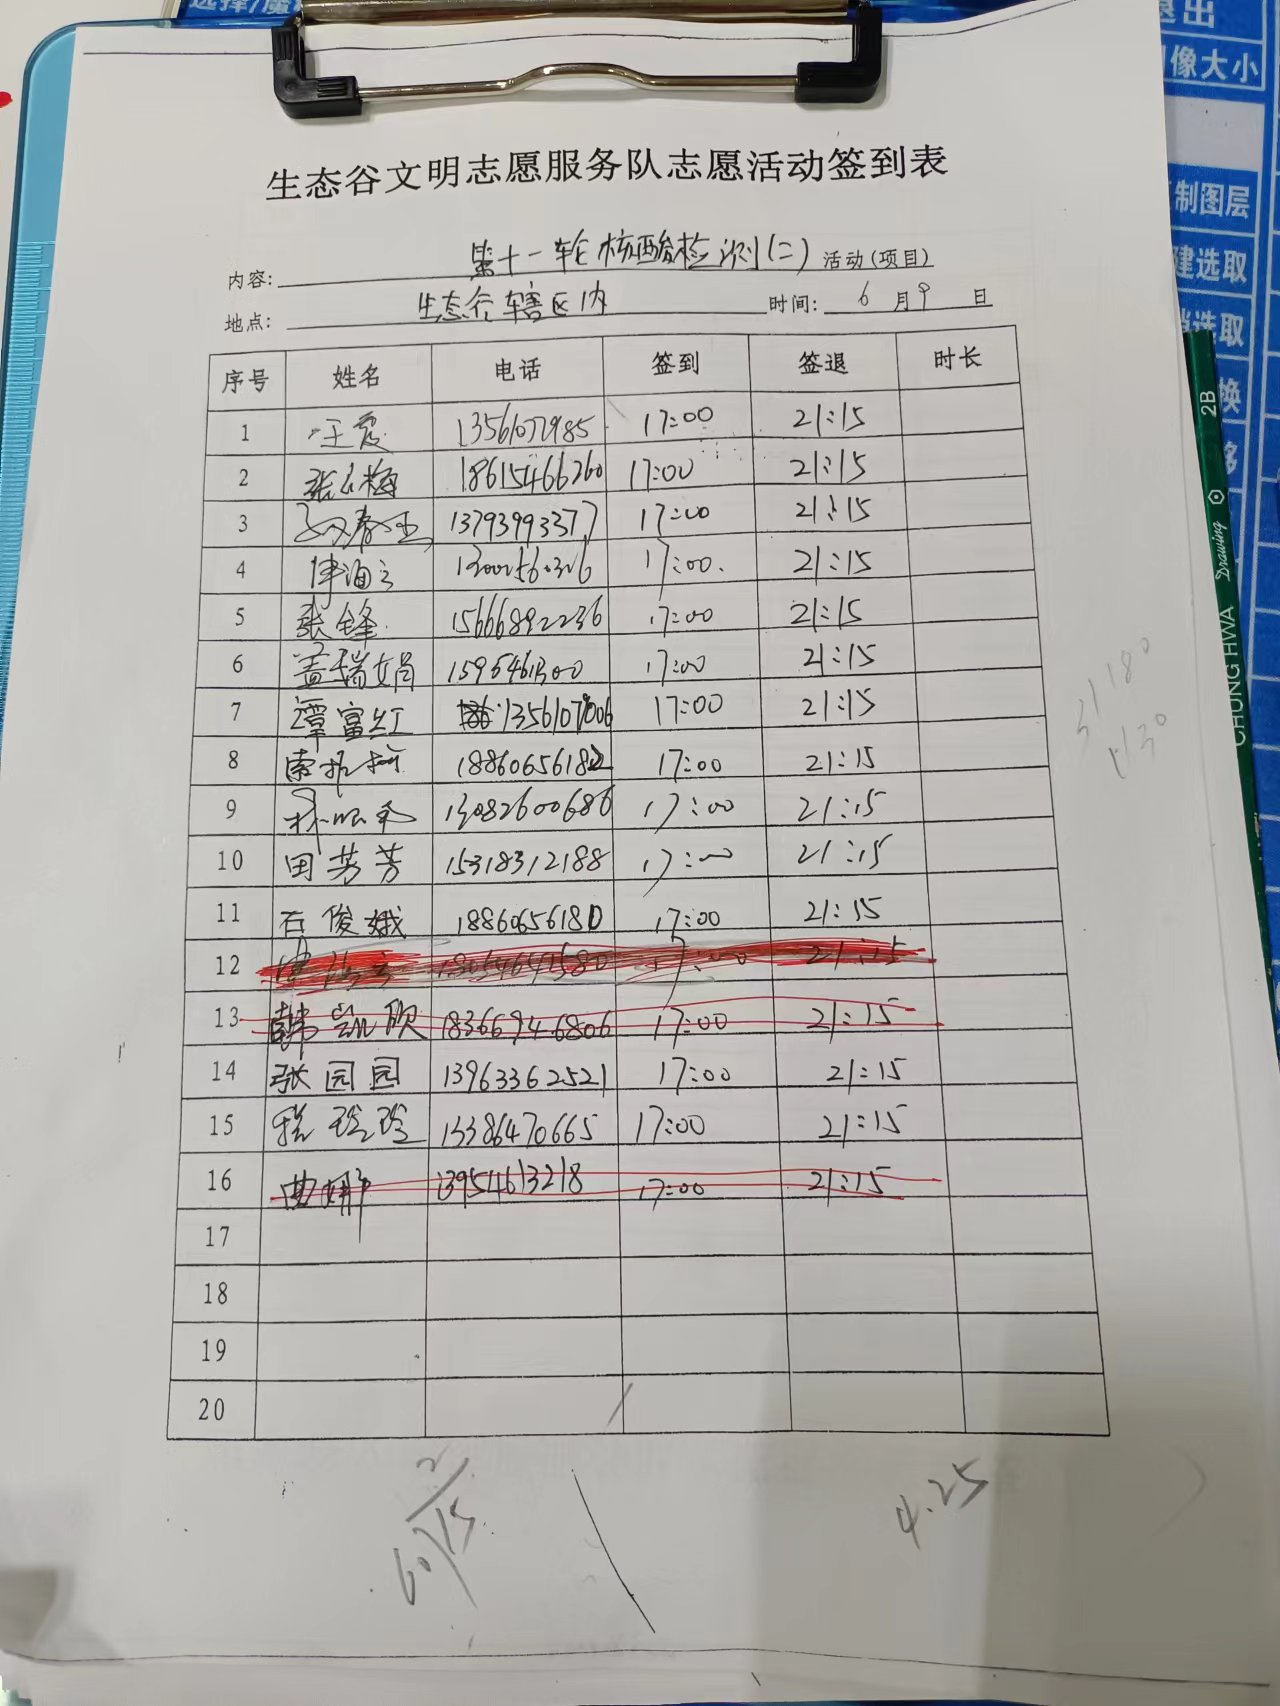 选择/属
退出
图像大小
制图层
建选取
选取
换
移
生态谷文明志愿服务队志愿活动签到表
内容: 第十一轮核酸检测(二) 活动(项目)
地点: 生态谷辖区内 时间: 6 月 9 日
序号 姓名 电话 签到 签退 时长
1 汪霞 13561072985 17:00 21:15
2 18615466260 17:00 21:15
3 13793993377 17:00 21:15
4 17:00. 21:15
5 张锋 15666892236 17:00 21:15
6 盖瑞娟 17:00 21:15
7 谭富红 17:00 21:15
8 18860656182 17:00 21:15
9 13082600686 17:00 21:15
10 田芳芳 15318312188 17:00 21:15
11 石俊娥 18860656180 17:00 21:15
12 17:00 21:15
13 韩凯欣 18366946806 17:00 21:15
14 张园园 13963362521 17:00 21:15
15 程玲玲 13386470665 17:00 21:15
16 曲娜 13954613218 17:00 21:15
17
18
19
20
4.25
60 15
2B
Drawing
CHUNG HWA